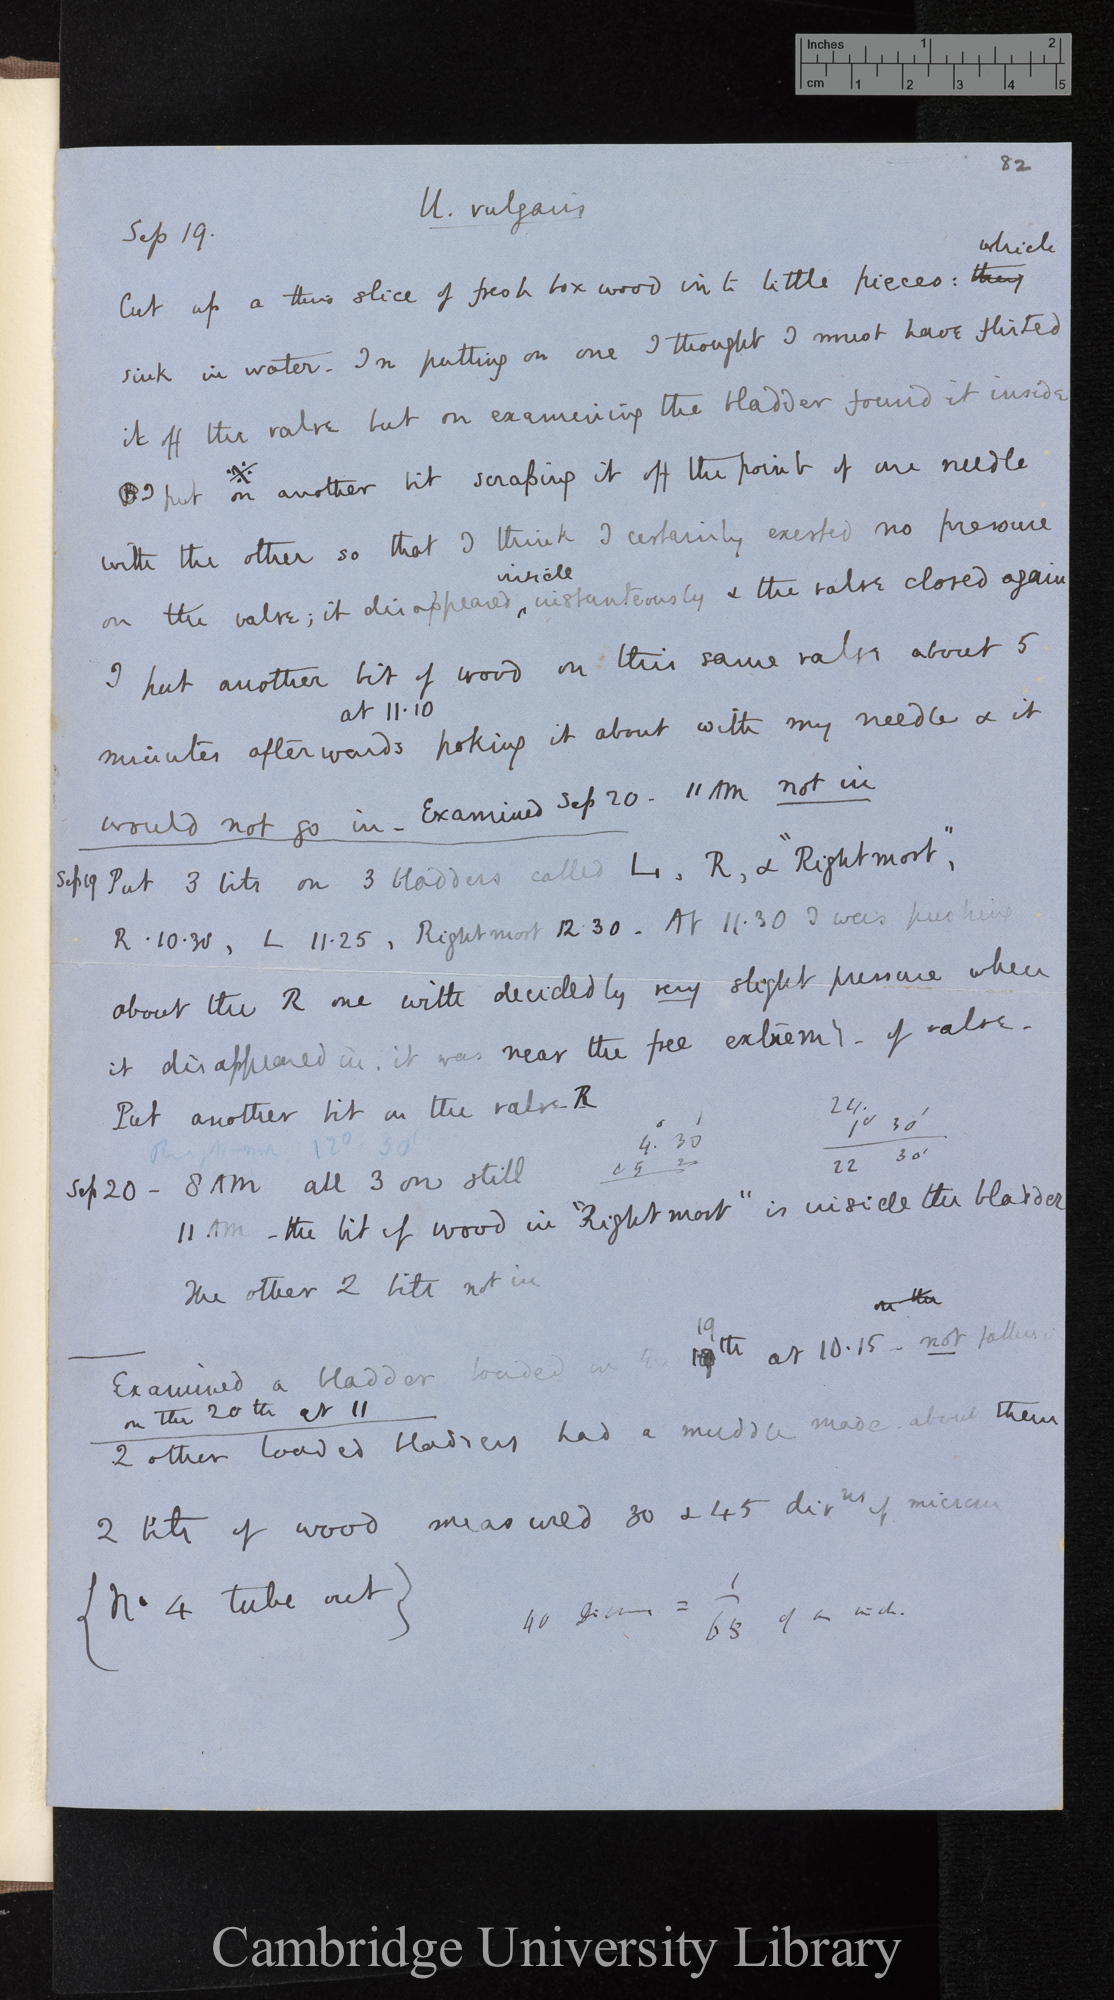 Inches 1 2
cm 1 2 3 4 5
82
U. vulgaris
Sep 19.
which
Cut up a thin slice of fresh box wood into little pieces: they
sink in water. In putting on one I thought I must have flirted
it off the valve but on examining the bladder found it inside
I put on another bit scraping it off the point of one needle
with the other so that I think I certainly exerted no pressure
inside
on the valve; it disappeared, instanteously & the valve closed again
I put another bit of wood on this same valve about 5
at 11.10
minutes afterwards poking it about with my needle & it
would not go in - Examined Sep 20 - 11 AM not in
Sep 19 Put 3 bits on 3 bladders called L, R, & "Rightmost",
R . 10.30, L 11.25, Rightmost 12.30 - At 11.30 I was pushing
about the R one with decidedly very slight pressure when
it disappeared in. it was near the free extremy - of valve -
Put another bit on the valve R
24.
1° 30'
4.° 30'
22 30'
Rightmost 12° 30'
Sep 20 - 8 AM all 3 on still
11 AM - the bit of wood in "Rightmost" is inside the bladder
The other 2 bits not in
on the
19
Examined a bladder loaded on the th at 10.15 - not fallen
on the 20th at 11
2 other loaded bladders had a muddle made about them
2 bits of wood measured 30 & 45 divns of microm
{No 4 tube out}
40 = 1/65 of an inch.
Cambridge University Library